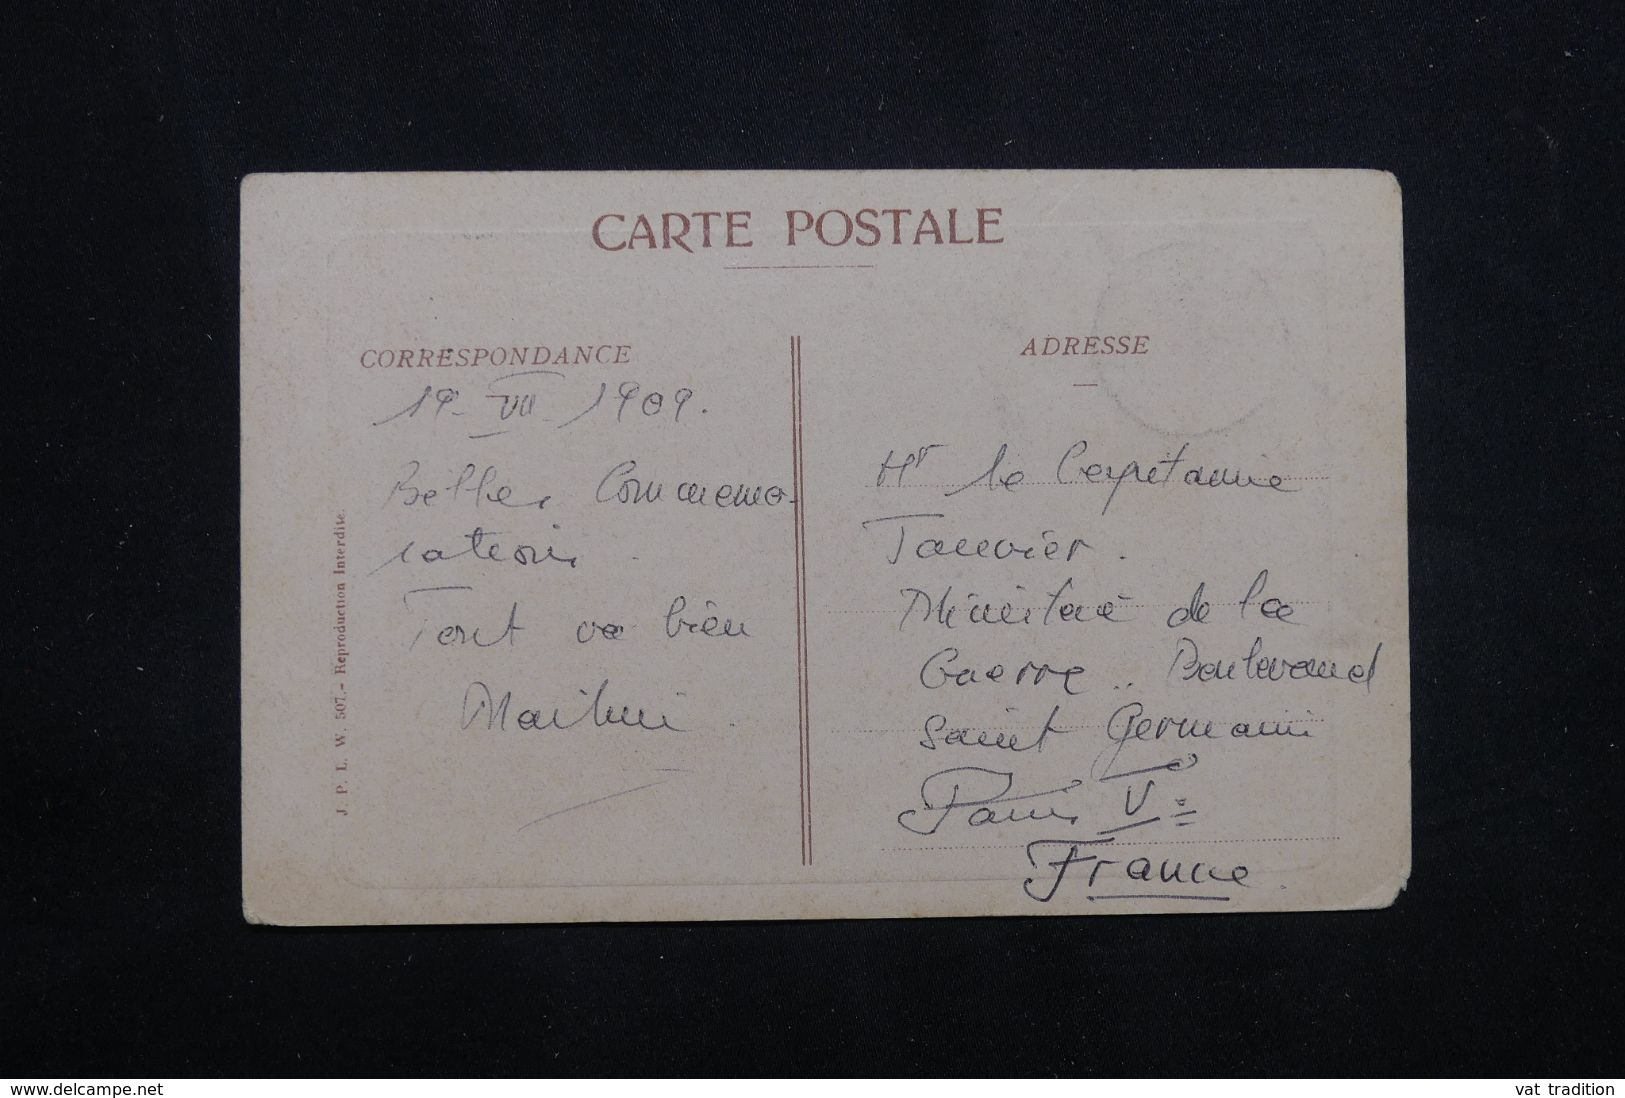 CARTE POSTALE
CORRESPONDANCE
19 - VII - 1909.
Belles Commémo-
rations.
Tout va bien
ADRESSE
Mr le Capitaine
Janvier.
Ministère de la
Guerre .. Boulevard
Saint Germain
Paris V=
France
J. P. L. W. 507. - Reproduction Interdite.
www.delcampe.net
vat tradition